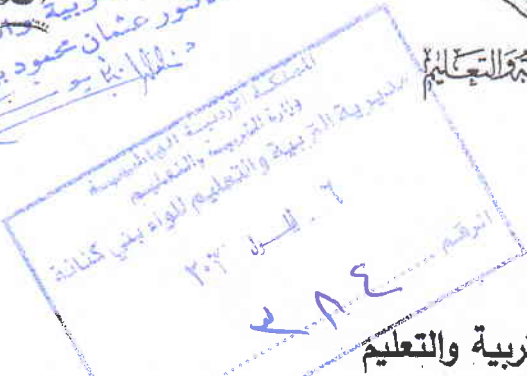 التربية وا
الدكتور عثمان محمود
والتعليم
المملكة الأردنية الهاشمية
وزارة التربية والتعليم
مديرية التربية والتعليم للواء بني كنانة
٠٦ أيلول ٢٠٢
الرقم ٣٨٤
ربية والتعليم